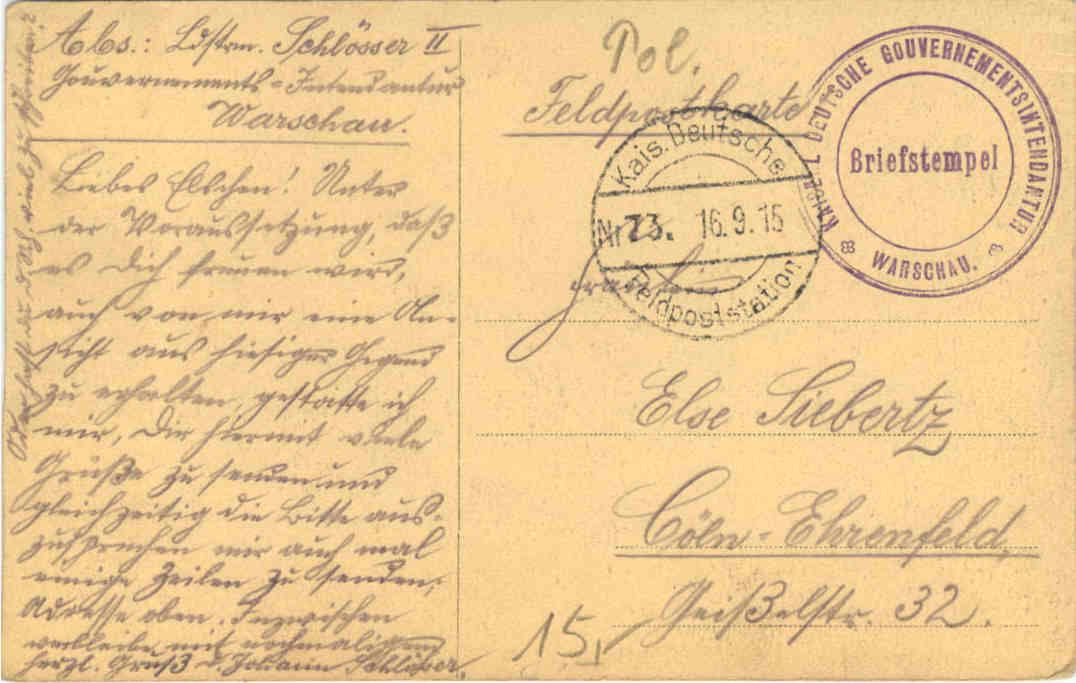 Abs.: Ldstrm. Schlösser II
Gouvernements-Intendantur
Warschau.
Liebes Elschen! Unter
der Voraussetzung, daß
es Dich freuen wird,
auch von mir eine An-
sicht aus hiesiger Gegend
zu erhalten, gestatte ich
mir, Dir hiermit viele
Grüße zu senden und
gleichzeitig die Bitte aus-
zusprechen mir auch mal
einige Zeilen zu senden;
Adresse oben. Inzwischen
verbleibe mit nochmaligem
herzl. Gruß d. Johann Schlösser.
hast du d. viel zu schreiben?
Pol.
Feldpostkarte
Kais. Deutsche
Nr 73. 16.9.15
Feldpoststation
KAISERL. DEUTSCHE GOUVERNEMENTSINTENDANTUR
Briefstempel
WARSCHAU.
Fräulein
Else Siebertz
Cöln-Ehrenfeld,
Geißelstr. 32.
15,